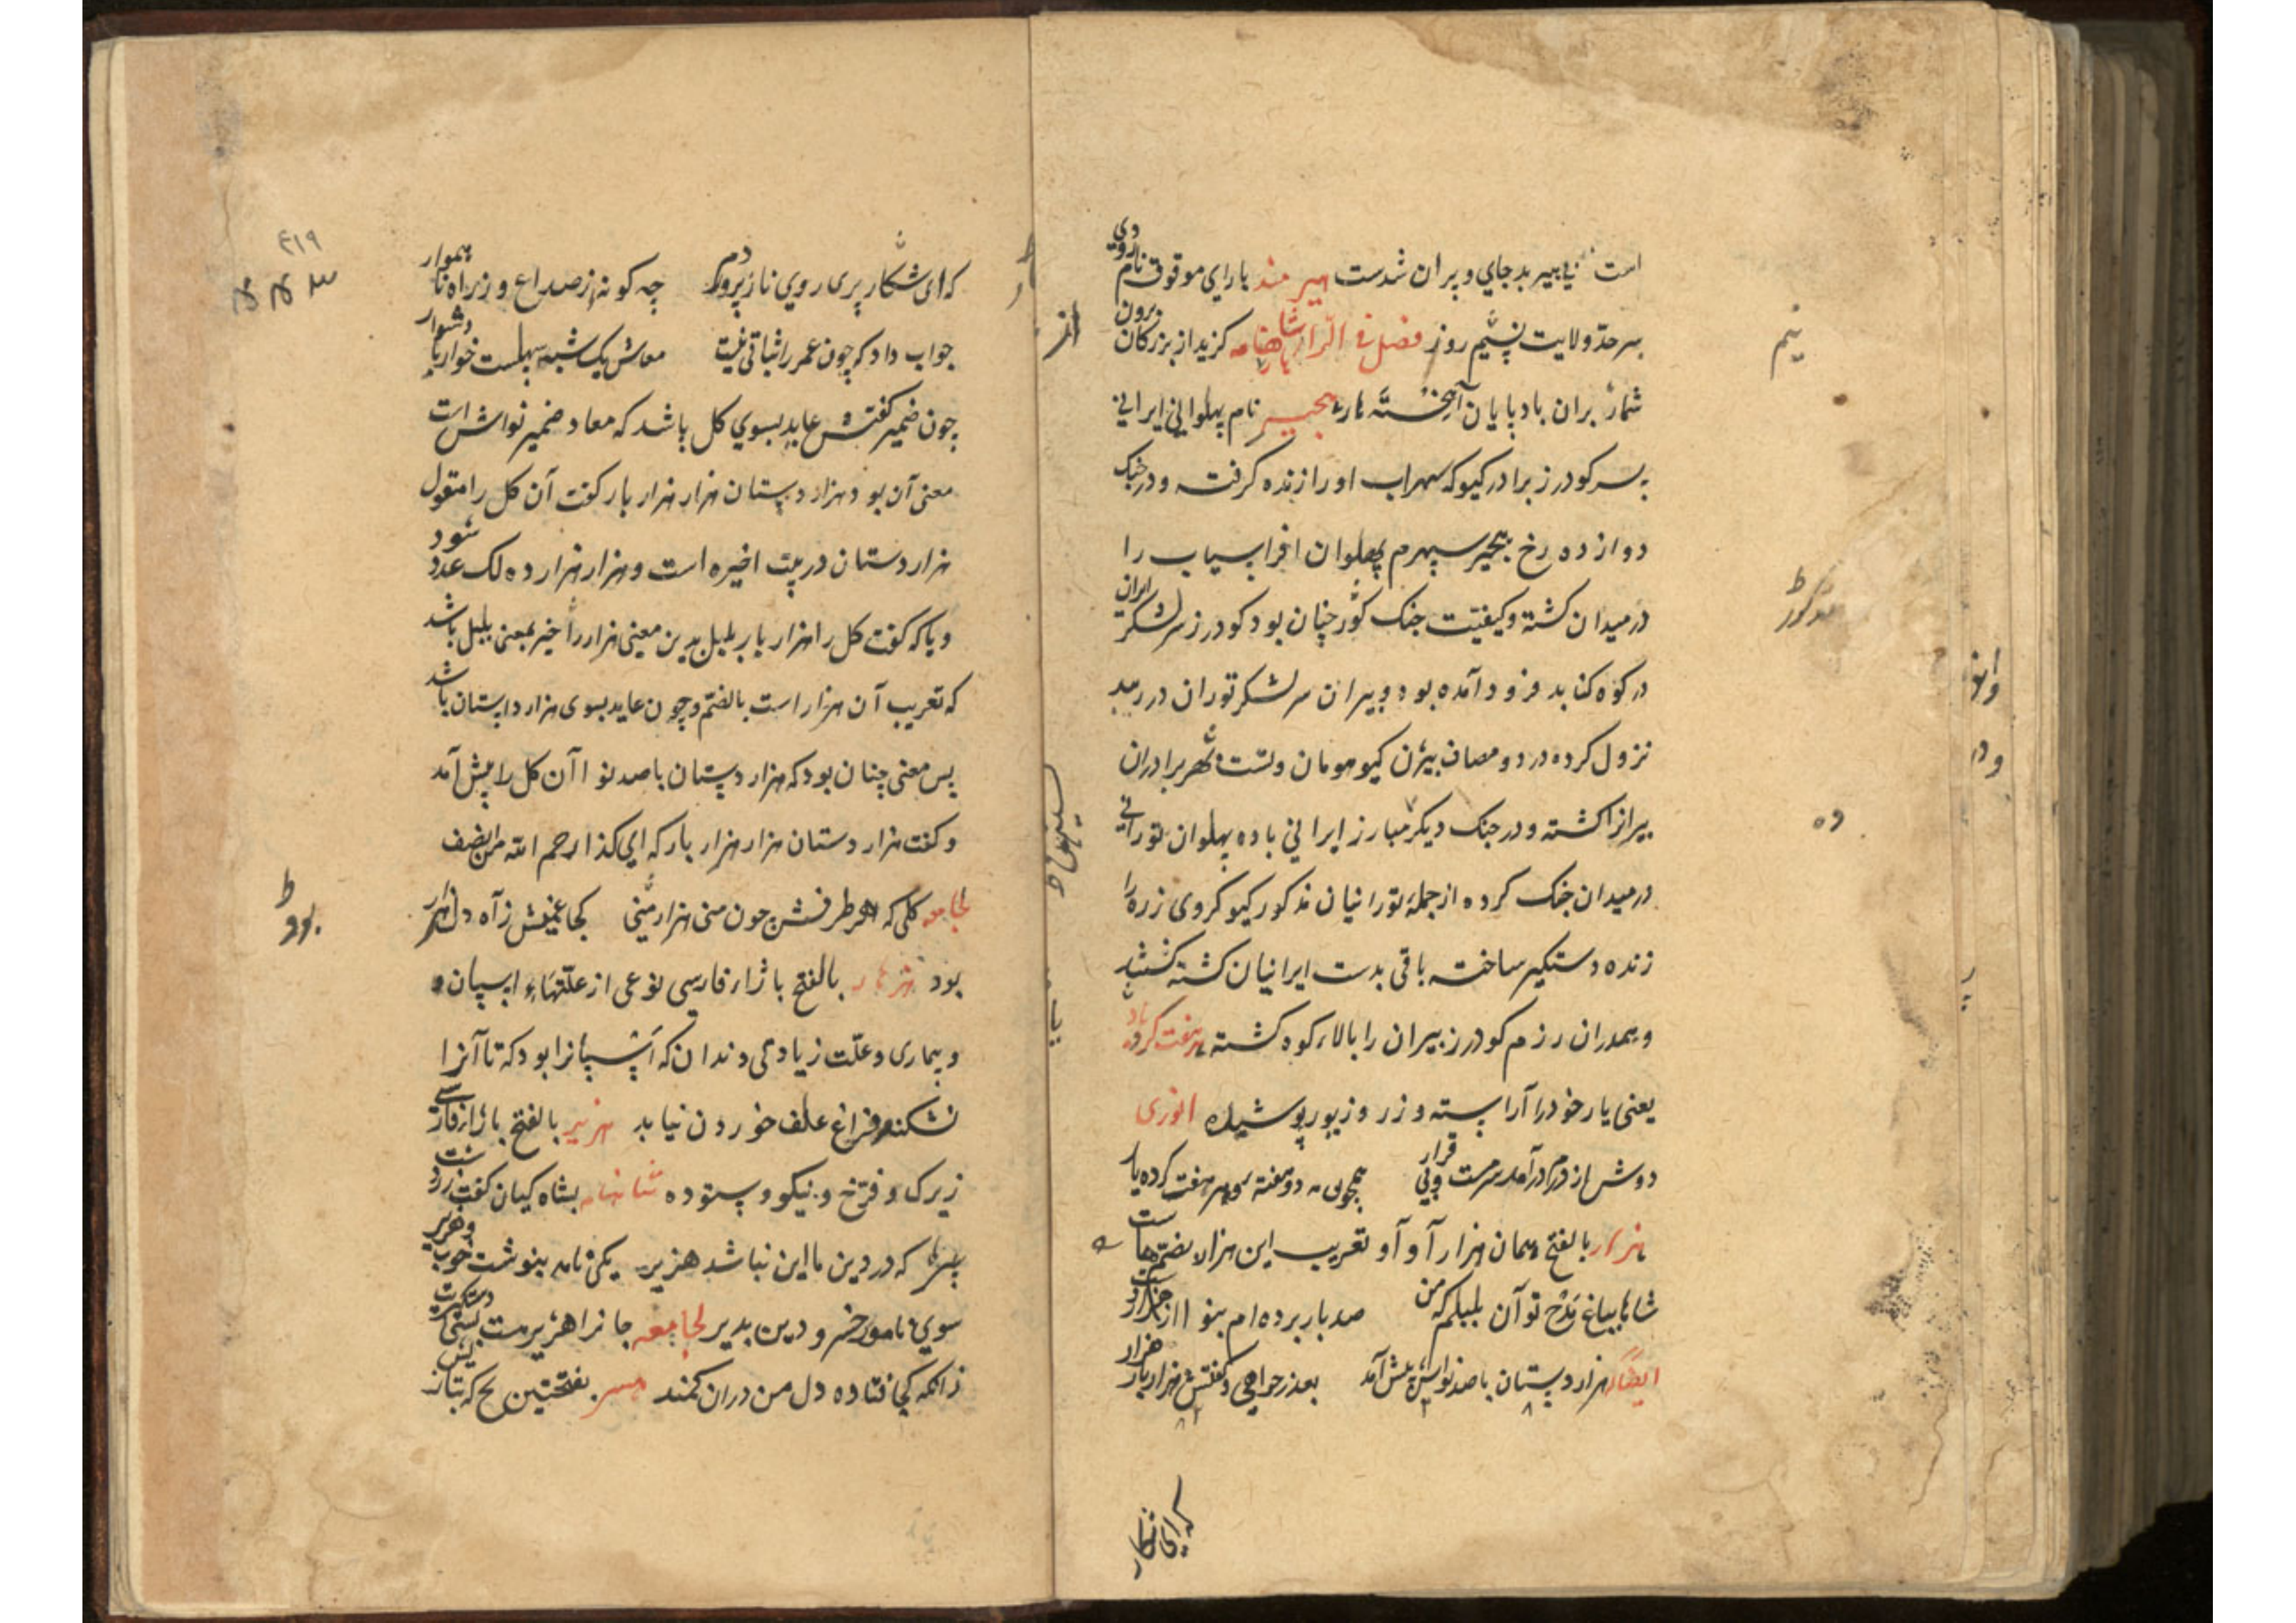 است یا هیر بد جای و پران شدست هیرمند بارای موقوف نام رودی
بسرحد ولایت نیم روز فصل فی الزا شاهنامه گزید از بزرگان برون
شمار بران بادپایان آهخته مار هجیر نام پهلوانی ایرانی
پسر کودرز برادر کیو که سهراب او را زنده گرفت و در جنک
دوازده رخ هجیر سپهرم پهلوان افراسیاب را
در میدان کشته و کیفیت جنک مذکور چنان بود کودرز سر لشکر ایران
در کوه کنابد فرود آمده بود و پیران سر لشکر توران در ریبد
نزول کرده در دو مصاف بیژن کیو هومان و نستهن برادران
پیرانرا کشته و در جنک دیکر ده مبارز ایرانی با ده پهلوان تورانی
در میدان جنک کرده از جمله تورانیان مذکور کیو کروی زره را
زنده دستکیر ساخته باقی بدست ایرانیان کشته شدند
و همدران رزم کودرز پیران را بالاء کوه کشته هرهفت کرده
یعنی یار خود را آراسته و زر و زیور پوشیده انوری
دوش از درم درآمد سرمست و بی قرار همچون مه دو هفته و هر هفت کرده یار
هزار بالفتح همان هزار آوا و تعریب این هزار بضم هاست
شاها بباغ مدح تو آن بلبلم که من صد بار برده ام بنوا از هزار دست
ایضا هزار دستان با صد نواش پیش آمد بعذرخواهی و کفتش هزار بار هزار
که ای نکار
۴۱۹
که ای شکار پری روی نازپرور دم چه کونه از صداع و زراه ناهموار
جواب داد که چون عمر را ثباتی نیست معاش یک شبه سهلست خوار یا دشوار
چون ضمیر کفتش عاید بسوی کل باشد که معاد ضمیر نواش است
معنی آن بود هزار دستان هزار هزار بار کفت آن کل را مقول
هزار دستان در بیت اخیره است و هزار هزار ده لک عدد شود
و یا که کفت کل را هزار بار بلبل بدین معنی هزار را خیر بمعنی بلبل باشد
که تعریب آن هزار است بالضم و چون عاید بسوی هزار دستان باشد
پس معنی چنان بود که هزار دستان با صد نوا آن کل را پیش آمد
و کفت هزار دستان هزار هزار بار که ای کذا رحم الله من انصف
لجامعه کلی که هر طرفش چون منی هزار منی کجا غمش ز آه دل هزار
بود هژهار بالفتح با ژار فارسی نوعی از علتهاء اسپان
و بیماری و علت زیادتی دندان که اسپانرا بود که تا آنرا
نشکنند فراغ علف خوردن نیابد هژیر بالفتح با ژار فارسی
زیرک و فرخ و نیکو و ستوده شاهنامه بشاه کیان کفت زردشت
پیر که در دین ما این نباشد هژیر یکی نامه بنوشت خوب و هژیر
سوی نامور خسرو دین پذیر لجامعه جانرا هژیر مت
زانکه کجا فتاده دل من دران کمند هسر بفتحتین یخ که بتازیش